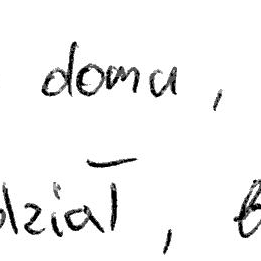 domu,
dział,